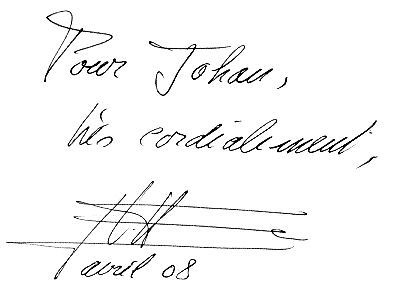 Pour Johan,
très cordialement,
avril 08